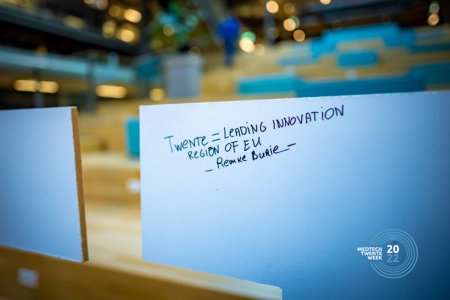 TWENTE = LEADING INNOVATION
REGION OF EU
- Remke Burie -
MEDTECH
TWENTE
WEEK
20
22